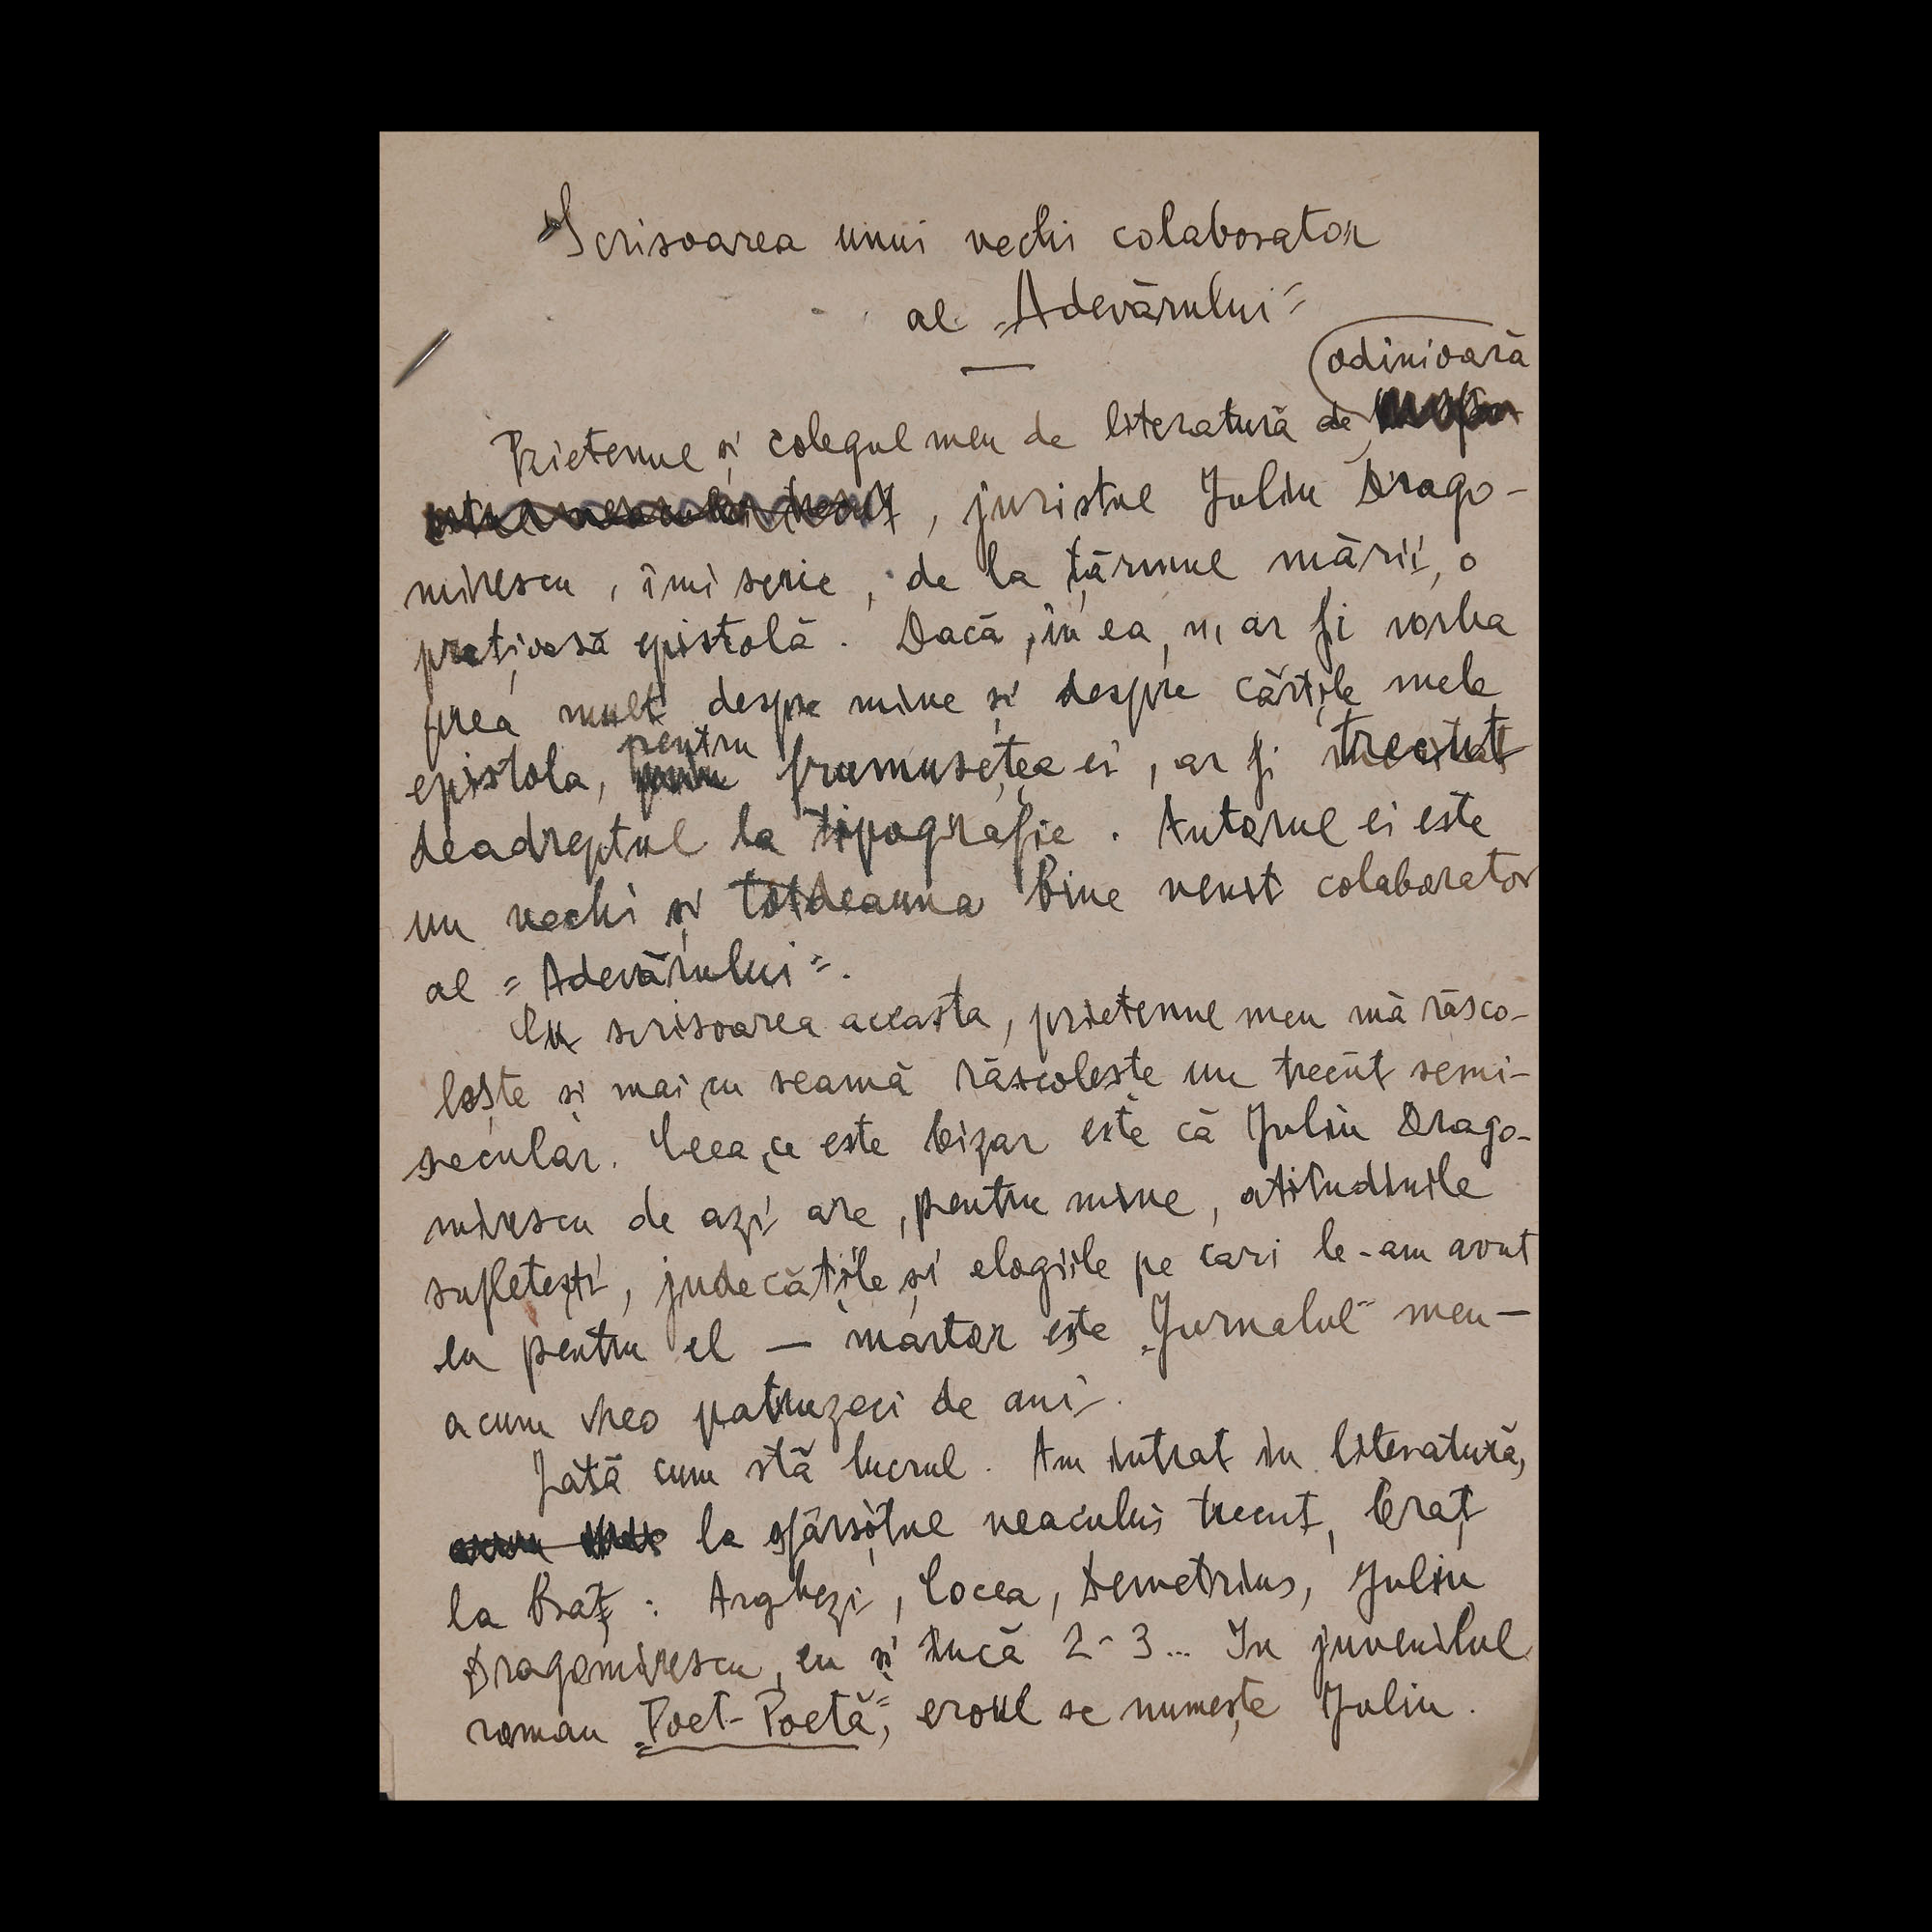 Scrisoarea unui vechi colaborator
al „Adevărului"
odinioară
Prietenul și colegul meu de literatură de
, juristul Juliu Drago-
mirescu, îmi scrie, de la țărmul mării, o
prețioasă epistolă. Dacă, în ea, n'ar fi vorba
prea mult despre mine și despre cărțile mele
pentru
epistola, frumusețea ei, ar fi trecut
deadreptul la tipografie. Autorul ei este
un vechi și totdeauna bine venit colaborator
al „Adevărului".
Cu scrisoarea aceasta, prietenul meu mă răsco-
lește și mai cu seamă răscolește un trecut semi-
secular. Ceea ce este bizar este că Juliu Drago-
mirescu de azi are, pentru mine, atitudinile
sufletești, judecățile și elogiile pe cari le-am avut
eu pentru el — martor este „Jurnalul" meu —
acum vreo patruzeci de ani.
Iată cum stă lucrul. Am intrat in literatură,
la sfârșitul veacului trecut, braț
la braț: Arghezi, Cocea, Demetrius, Juliu
Dragomirescu, eu și încă 2-3... In juvenilul
roman „Poet-Poetă", eroul se numește Juliu.